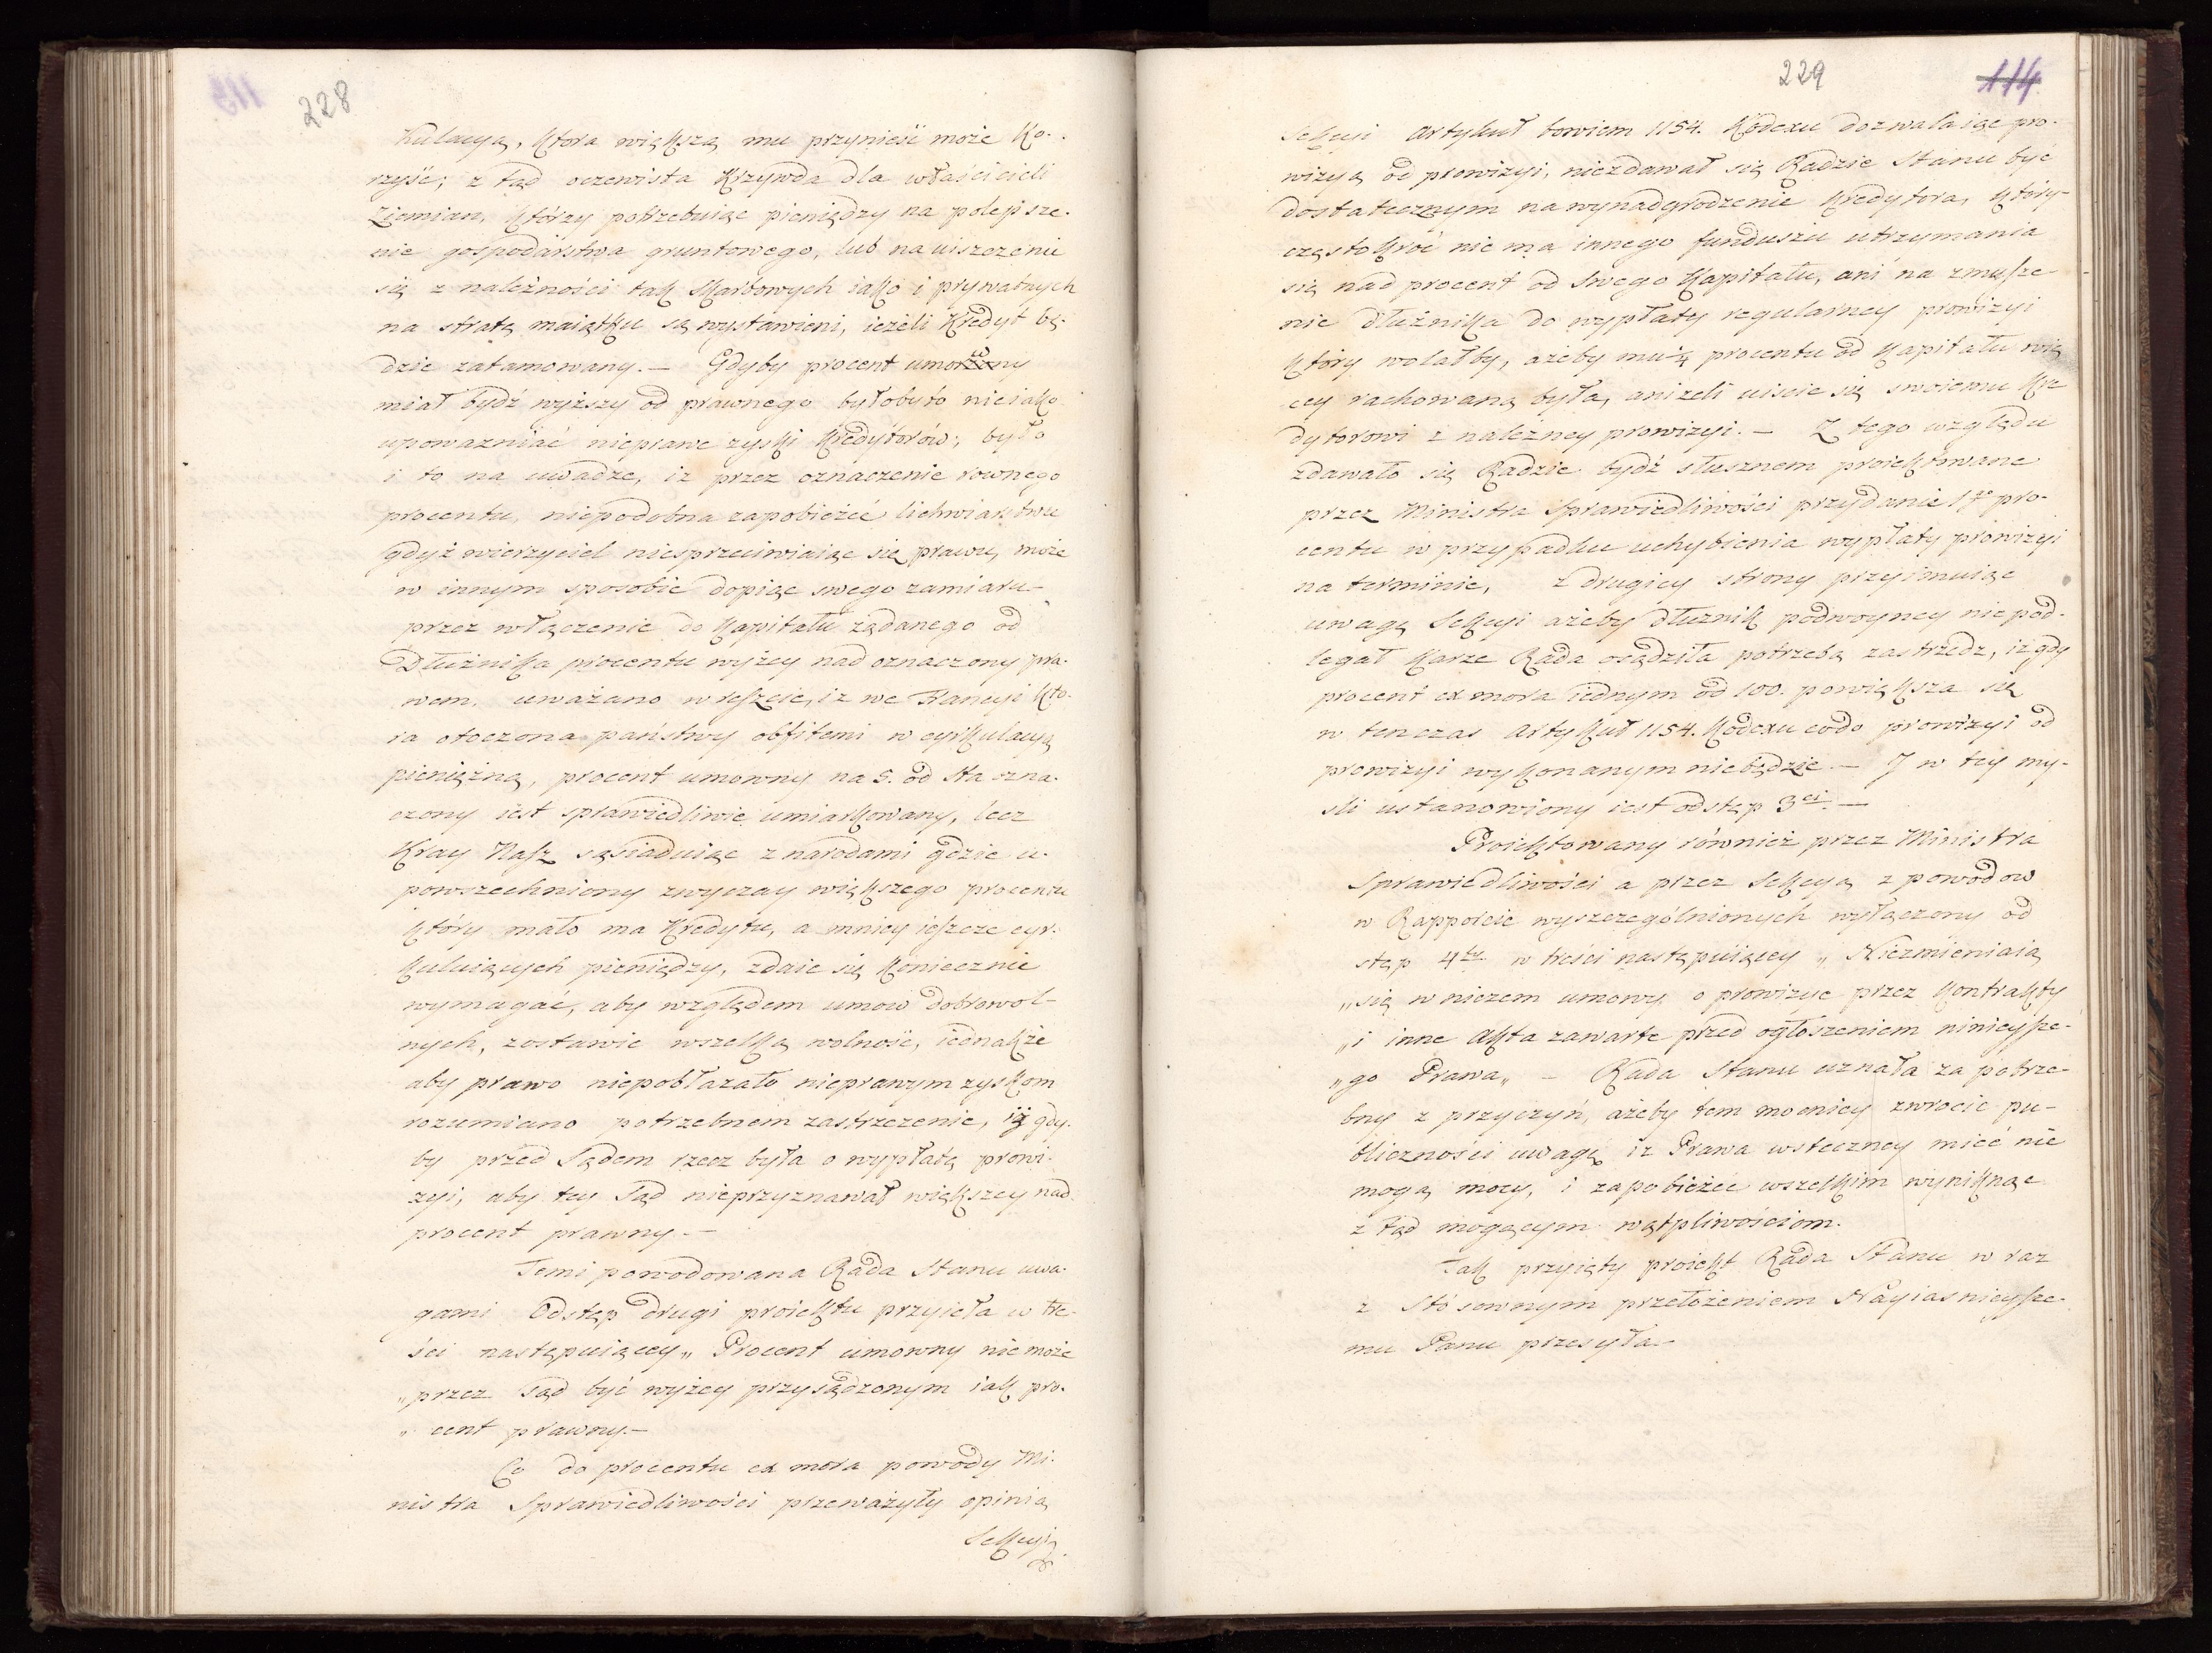 228
kulacyą, ktora większą mu przynieść może Ko-
rzyść; z tąd oczewista Krzywda dla właścicieli
Ziemian, którzy potrzebuiąc pieniędzy na polepsze-
nie gospodarstwa gruntowego, lub na uiszczenie
się z należności tak skarbowych iako i prywatnych
na stratę maiątku są wystawieni, ieżeli Kredyt bę-
dzie zatamowany. — Gdyby procent umowny
miał bydź wyższy od prawnego byłoby to nieiako
upoważniać nieprawe zyski Kredytorów; było
i to na uwadze, iż przez oznaczenie rownego
procentu, niepodobna zapobieżeć lichwiarstwu
gdyż wierzyciel niesprzeciwiaiąc się prawu, może
w innym sposobie dopiąć swego zamiaru —
przez włączenie do Kapitału żądanego od
Dłużnika procentu wyżey nad oznaczony pra-
wem. uważano wreszcie, iż we Francyi kto-
ra otoczona państwy obfitemi w cyrkulacyą
pieniężną, procent umowny na 5. od sta ozna-
czony iest sprawiedliwie umiarkowany, lecz
Kray Nasz sąsiaduiąc z narodami gdzie u-
powszechniony zwyczay większego procentu
który mało ma Kredytu, a mniey ieszcze cyr-
kuluiących pieniędzy, zdaie się koniecznie
wymagać, aby względem umow dobrowol-
nych, zostawić wszelką wolność, iednakże
aby prawo niepobłażało nieprawym zyskom
rozumiano potrzebnem zastrzeżenie, iż gdy-
by przed Sądem rzecz była o wypłatę prowi-
zyi, aby tey Sąd nieprzyznawał większey nad
procent prawny. —
Temi powodowana Rada Stanu uwa-
gami Odstęp drugi proiektu przyięła w tre-
ści następuiącey „ Procent umowny nie może
„ przez Sąd być wyżey przysądzonym iak pro-
„ cent prawny. —
Co do procentu ex mora powody Mi-
nistra Sprawiedliwości przeważyły opinią
Sekcyi
229
114
Sekcyi Artykuł bowiem 1154. Kodexu dozwalaiąc pro-
wizyą od prowizyi, niezdawał się Radzie Stanu być
dostatecznym na wynadgrodzenie Kredytora, który
częstokroć nie ma innego funduszu utrzymania
się nad procent od swego Kapitału, ani na zmusze
nie dłużnika do wypłaty regularney prowizyi
który wolałby, ażeby mu ¼ procentu od Kapitału wię
cey rachowaną była, aniżeli uiście się swoiemu Kre
dytorowi z należney prowizyi. — Z tego względu
zdawało się Radzie bydź słusznem proiektowane
przez Ministra Sprawiedliwości przydanie 1go pro-
centu w przypadku uchybienia wypłaty prowizyi
na terminie, z drugiey strony przyimuiąc
uwagę Sekcyi ażeby dłużnik podwoyney nie pod-
legał karze Rada osądziła potrzebą zastrzedz, iż gdy
procent ex mora iednym od 100. powiększa się
w tenczas Artykuł 1154. Kodexu co do prowizyi od
prowizyi wykonanym niebędzie — J w tey my-
śli ustanowiony iest odstęp 3ci. —
Proiektowany również przez Ministra
Sprawiedliwości a przez Sekcyą z powodow
w Rapporcie wyszczególnionych wyłączony od
stęp 4ty w treści następuiącey „ Niezmieniaią
„ się w niczem umowy o prowizye przez kontrakty
„ i inne Akta zawarte przed ogłoszeniem ninieysze-
„ go Prawa „ — Rada Stanu uznała za potrze-
bny z przyczyń, ażeby tem mocniey zwrocić pu-
bliczności uwagę iż Prawa wsteczney mieć nie
mogą mocy, i zapobieżeć wszelkim wyniknąć
z tąd mogącym wątpliwościom.
Tak przyięty proiekt Rada Stanu w raz
z Stósownym przełożeniem Nayiasnieysze-
mu Panu przesyła —